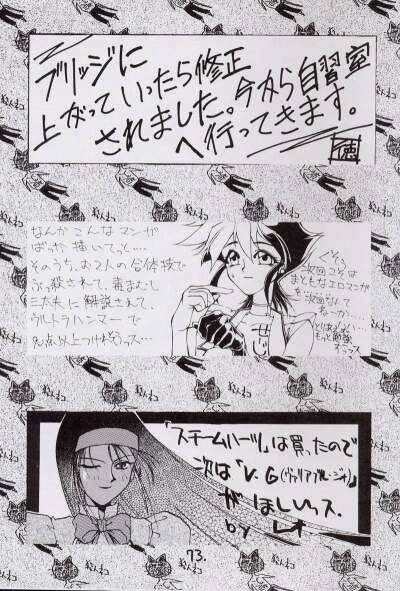 ブリッジに
上がっていったら修正
されました。今から自習室
へ行ってきます。
徳
なんかこんなマンガ
ばっか描いてっと…
そのうち、お2人の合体技で
ぶっ殺されて、毒まむし
三太夫に解説されて、
ウルトラハンマーで
くそ…
次回こそは
まともなエロマンガを
次回なんて
あっか…
とりあえず、
もっと勉強
せい
「スチームハーツ」は買ったので
次は「V.G(ヴァリアブル・ジオ)」
がほしいっス.
by
73.